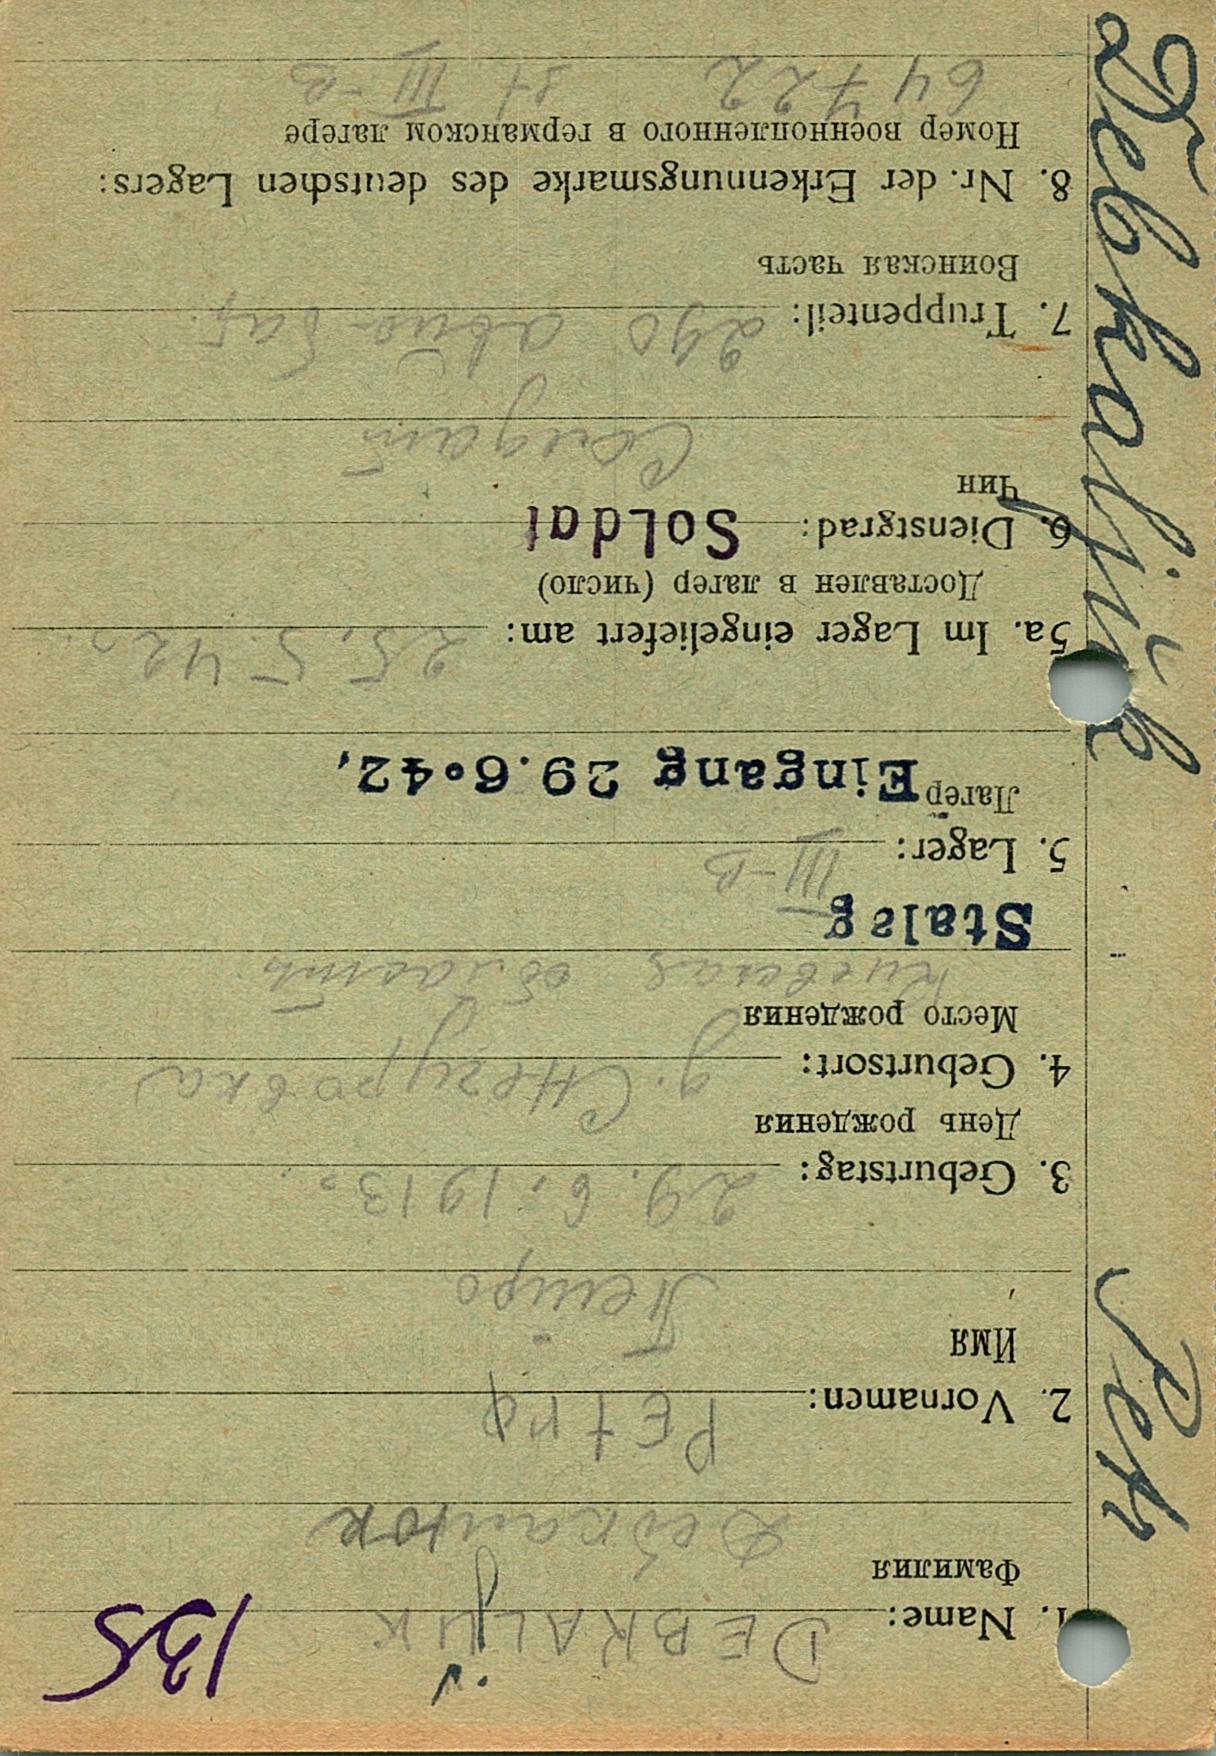 135
1. Name: DEBKALJUK
Фамилия
Дебкалюк
2. Vornamen: PEtro
Имя
Петро
3. Geburtstag: 29.6.1913.
День рождения
4. Geburtsort: д. Снегуровка
Место рождения
Киевская область
Stalag
5. Lager: III-B
Лагер Eingang 29.6.42,
5a. Im Lager eingeliefert am: 25.5.42
Доставлен в лагер (число)
6. Dienstgrad: Soldat
Чин
Солдат
7. Truppenteil: 290 авио-баз.
Воинская часть
8. Nr. der Erkennungsmarke des deutschen Lagers:
Номер военнопленного в германском лагере
64722 St III-B
Debkaljuk Petr